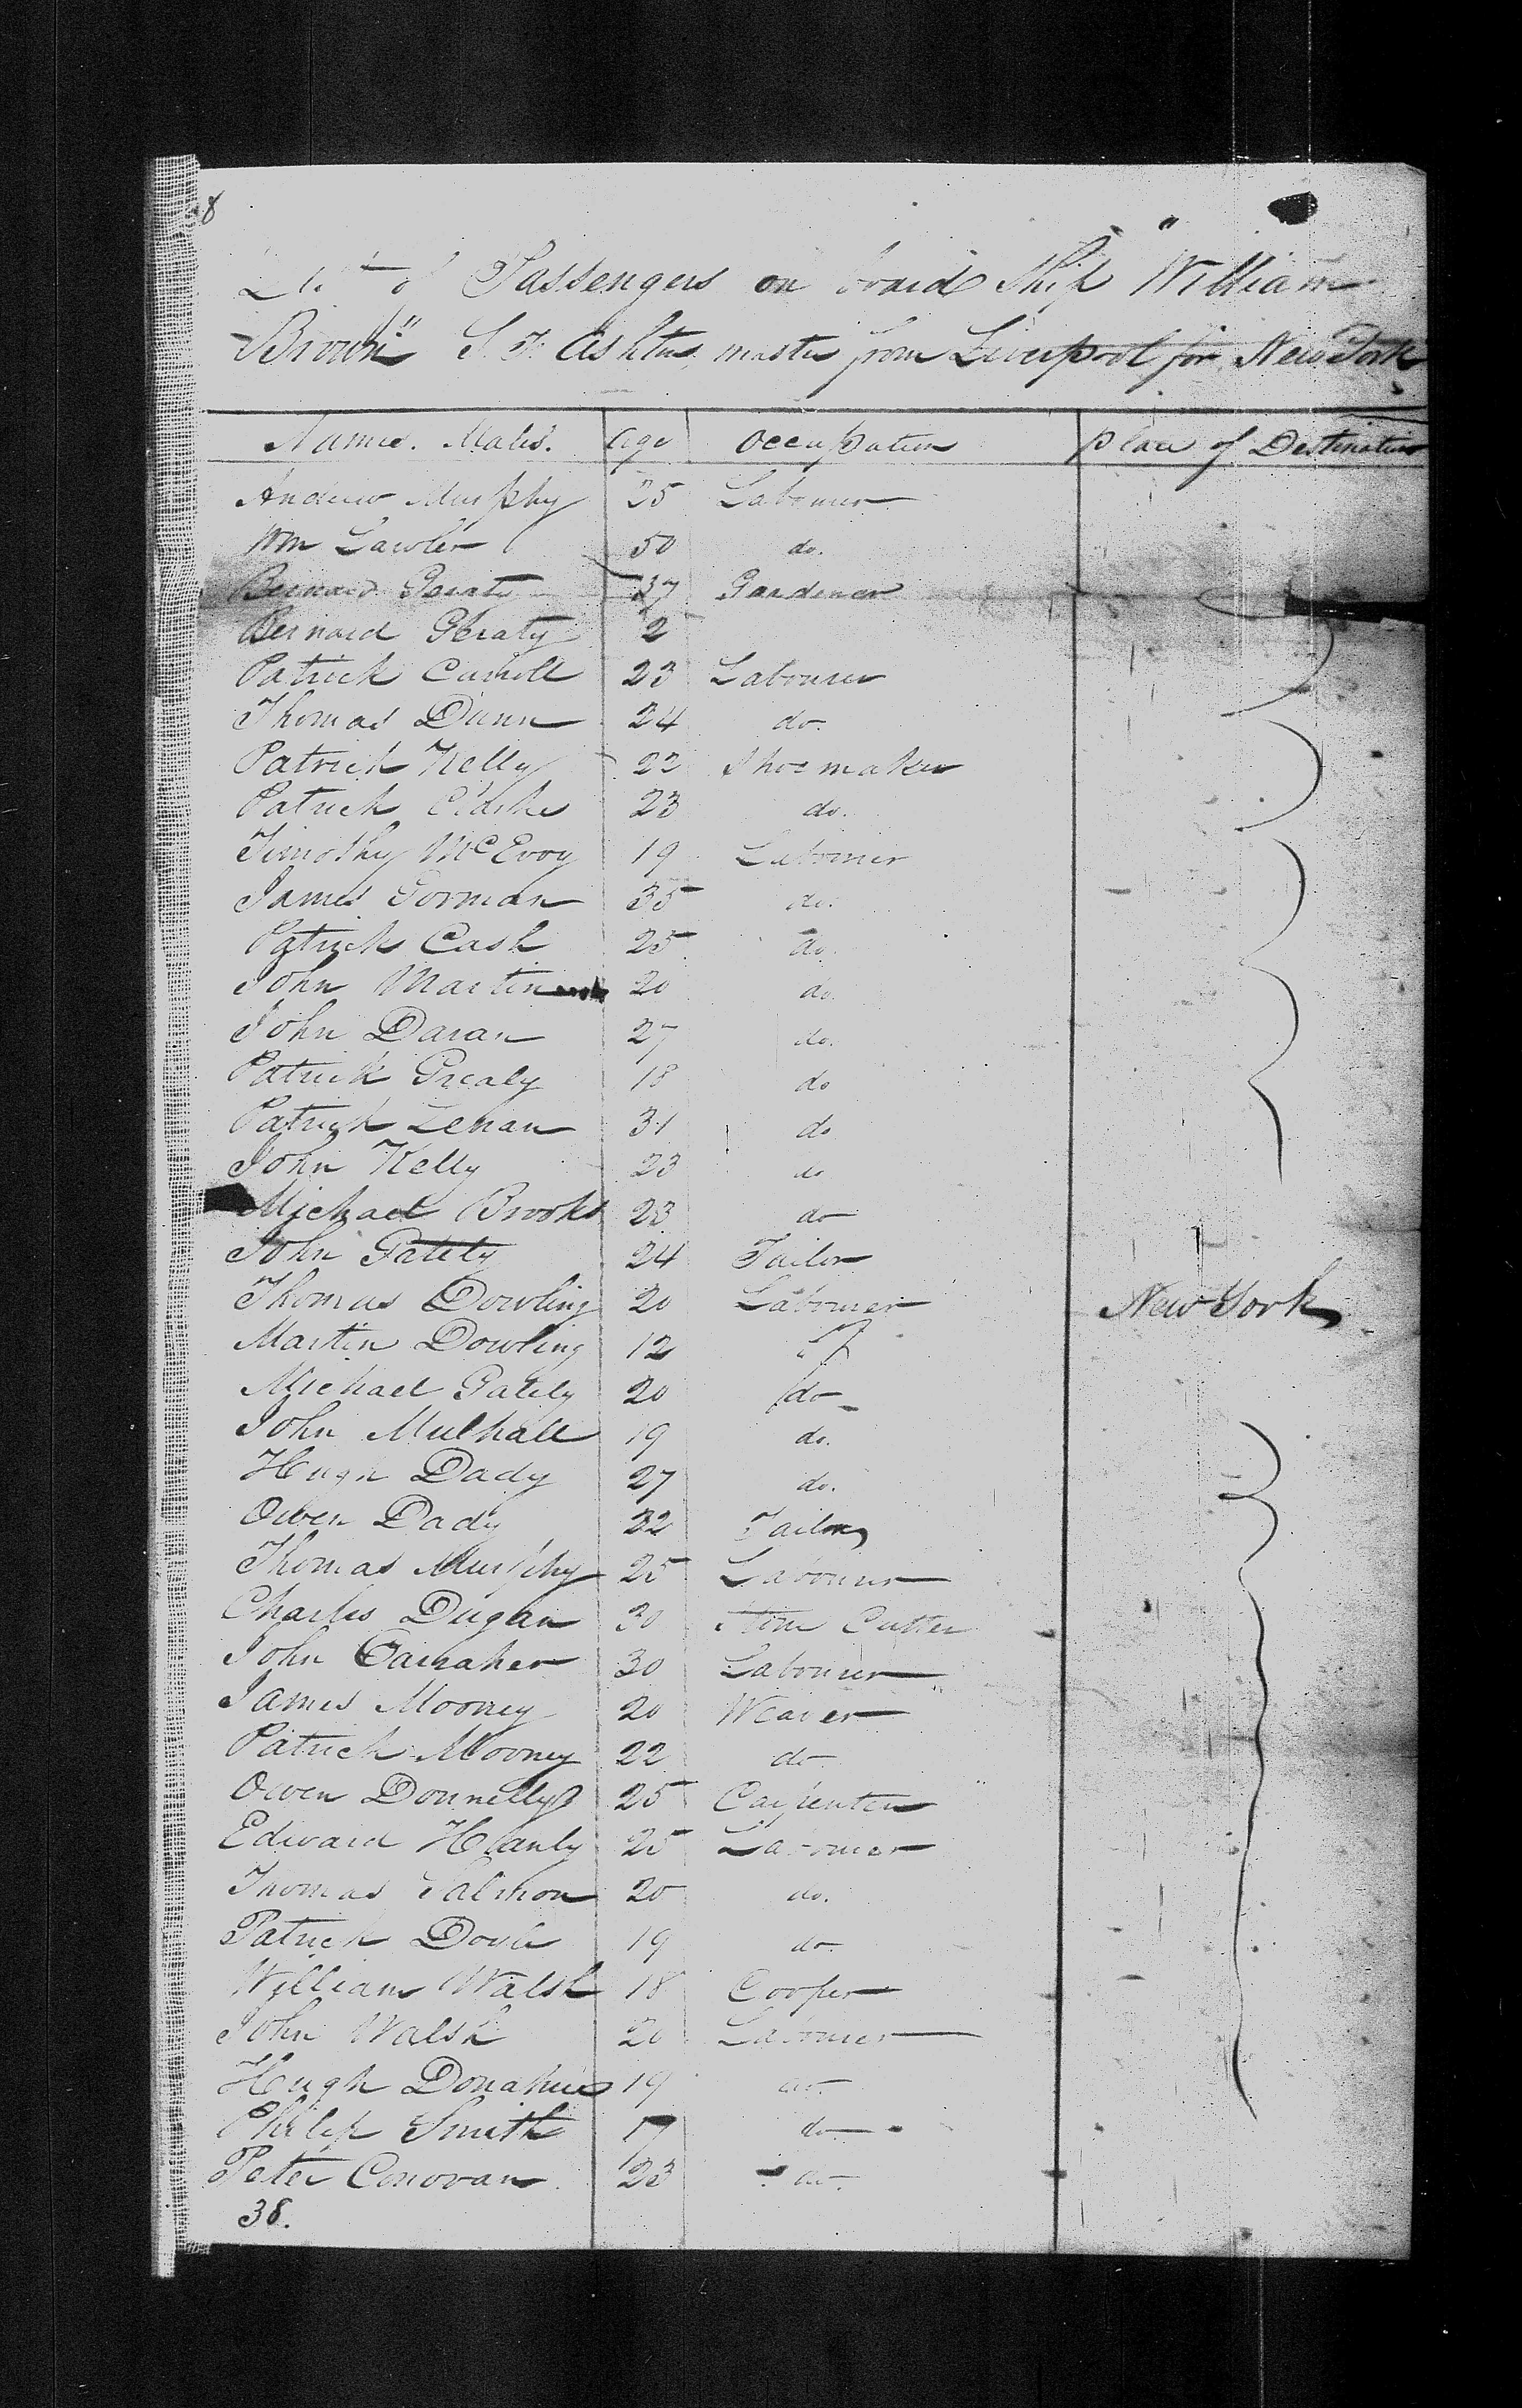 8
List of Passengers on board Ship "William
Brown" S. T. Ashton, master from Liverpool for New York
Names. Males. Age Occupation Place of Destination
Andrew Murphy 25 Labourer
Wm Lawler 50 do.
Bernard Geraty 37 Gardener
Bernard Geraty 2
Patrick Carroll 23 Labourer
Thomas Dunn 24 do.
Patrick Kelly 22 Shoemaker
Patrick Clarke 23 do.
Timothy McEvoy 19 Labourer
James Gorman 35 do.
Patrick Cash 25 do.
John Martin 20 do.
John Daran 27 do.
Patrick Grealy 18 do
Patrick Lenan 31 do
John Kelly 23 do
Michael Brooks 23 do
John Gately 24 Tailor
Thomas Dowling 20 Labourer New York
Martin Dowling 12
Michael Gately 20 do
John Mulhall 19 do.
Hugh Dady 27 do.
Owen Dady 32 Tailor
Thomas Murphy 25 Labourer
Charles Dugan 30 Stone Cutter
John Carraher 30 Labourer
James Mooney 20 Weaver
Patrick Mooney 22 do
Owen Donnelly 25 Carpenter
Edward Hanly 25 Labourer
Thomas Salmon 20 do.
Patrick Doyle 19 do.
William Walsh 18 Cooper
John Walsh 20 Labourer
Hugh Donahue 19 do.
Philip Smith 17 do
Peter Conovan 23 do.
38.